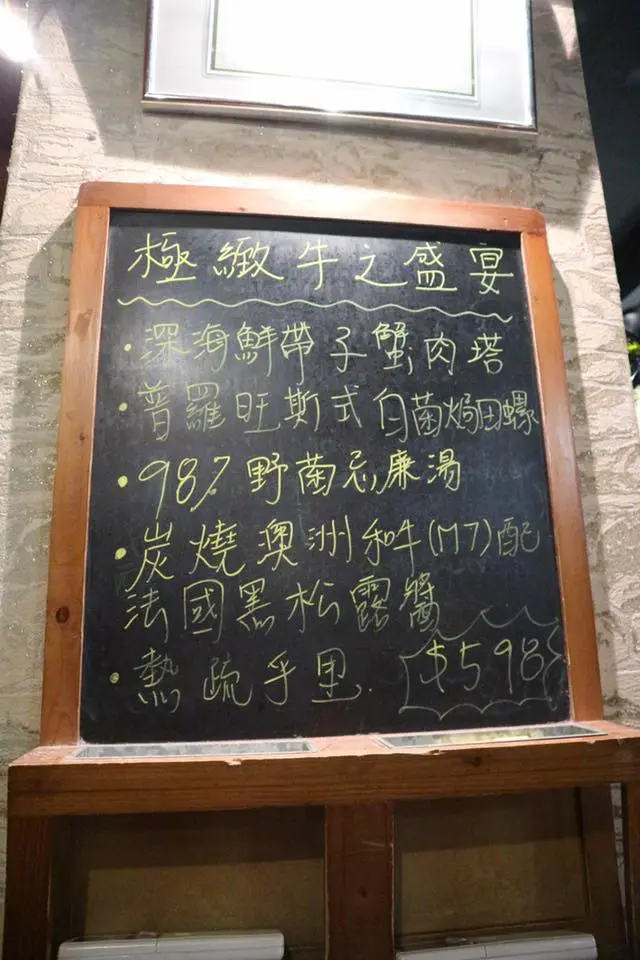 極緻牛之盛宴
·深海鮮帶子蟹肉塔
·普羅旺斯式白菌焗田螺
·98%野菌忌廉湯
·炭燒澳洲和牛(M7)配
法國黑松露醬
·熱疏乎里. $598